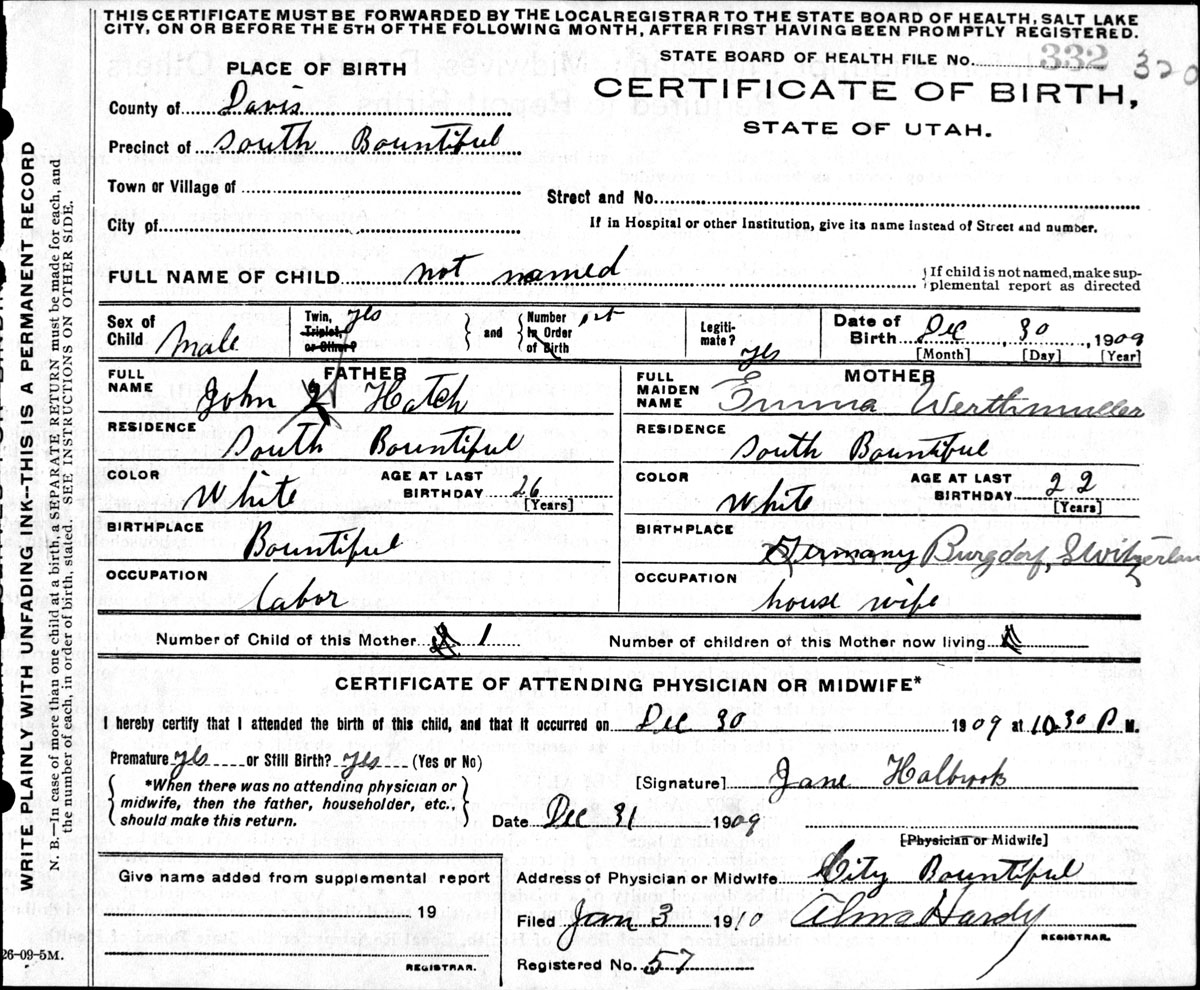 THIS CERTIFICATE MUST BE FORWARDED BY THE LOCAL REGISTRAR TO THE STATE BOARD OF HEALTH, SALT LAKE
CITY, ON OR BEFORE THE 5TH OF THE FOLLOWING MONTH, AFTER FIRST HAVING BEEN PROMPTLY REGISTERED.
STATE BOARD OF HEALTH FILE No. 332 320
PLACE OF BIRTH
CERTIFICATE OF BIRTH,
STATE OF UTAH.
County of Davis
Precinct of South Bountiful
Town or Village of
Street and No.
City of
If in Hospital or other Institution, give its name instead of Street and number.
FULL NAME OF CHILD not named
If child is not named, make sup-
plemental report as directed
Sex of Child Male
Twin, Triplet, or Other? yes
and
Number in Order of Birth 1st
Legiti-mate? yes
Date of Birth Dec 30, 1909
[Month] [Day] [Year]
FATHER
FULL NAME John Hatch
RESIDENCE South Bountiful
COLOR White
AGE AT LAST BIRTHDAY 26
[Years]
BIRTHPLACE Bountiful
OCCUPATION Labor
MOTHER
FULL MAIDEN NAME Emma Werthmuller
RESIDENCE South Bountiful
COLOR White
AGE AT LAST BIRTHDAY 22
[Years]
BIRTHPLACE Germany Burgdorf, Switzerlan
OCCUPATION house wife
Number of Child of this Mother 1
Number of children of this Mother now living
CERTIFICATE OF ATTENDING PHYSICIAN OR MIDWIFE*
I hereby certify that I attended the birth of this child, and that it occurred on Dec 30 1909 at 10.30 P M.
Premature yes or Still Birth? yes (Yes or No)
*When there was no attending physician or
midwife, then the father, householder, etc.,
should make this return.
[Signature] Jane Holbrook
Date Dec 31 1909
[Physician or Midwife]
Give name added from supplemental report
19
REGISTRAR.
Address of Physician or Midwife City Bountiful
Filed Jan 3 1910 Alma Hardy
REGISTRAR.
Registered No. 57
26-09-5M.
WRITE PLAINLY WITH UNFADING INK--THIS IS A PERMANENT RECORD
N. B.—In case of more than one child at a birth, a SEPARATE RETURN must be made for each, and
the number of each, in order of birth, stated. SEE INSTRUCTIONS ON OTHER SIDE.